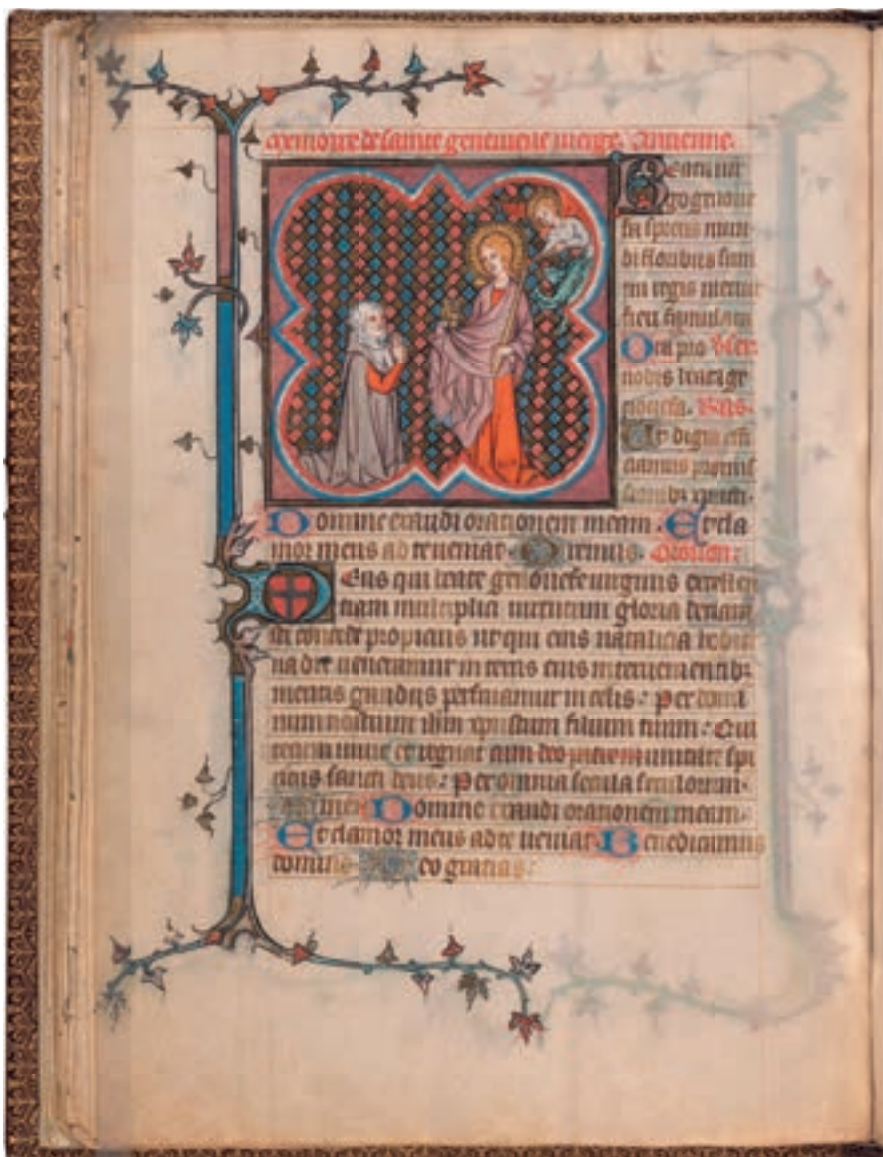 memoire de sainte genevieve vierge. Antienne.
Beata vir
go genove
fa speciis mun
di floribus sum
mi regis meruit
fieri famulam
Ora pro Ver.
nobis beata ge
novefa. Res.
Ut digni effi
ciamur promis
Domine exaudi orationem meam. Et cla
mor meus ad te veniat. Oremus. Oroison.
Deus qui beate genovefe virginis excellen
tiam multiplici virtutum gloria
concede propicius ut qui eius natalicia
na die veneramur in terris eius intervenientibz
meritis gaudiis perfruamur in celis. Per domi
num nostrum ihm xpistum filium tuum. Qui
tecum vivit et regnat cum deo patrem unitate spi
ritus sancti deus. Per omnia secula seculorum.
amen. Domine exaudi orationem meam.
Et clamor meus ad te veniat. Benedicamus
domino. Deo gratias.